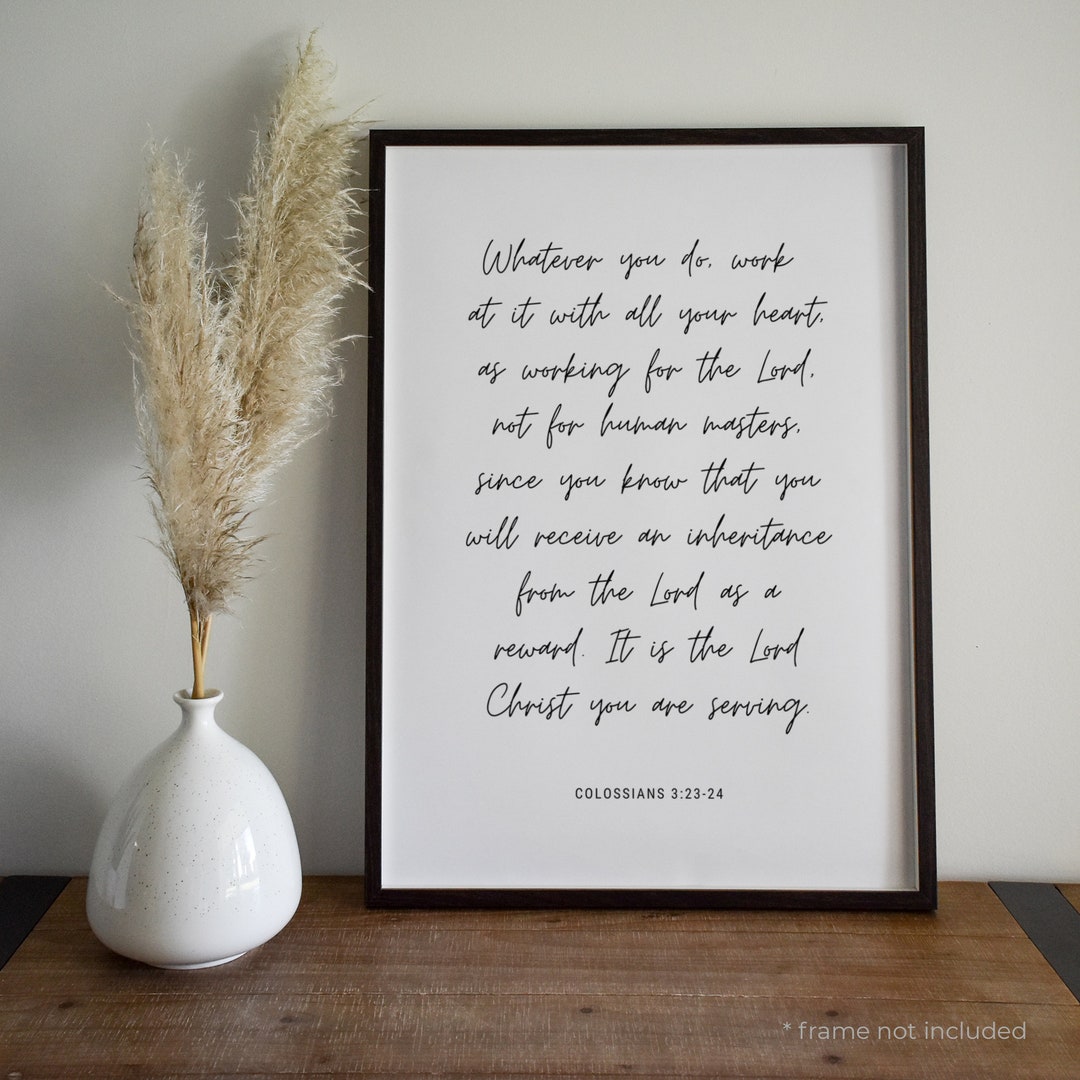 Whatever you do, work
at it with all your heart,
as working for the Lord,
not for human masters,
since you know that you
will receive an inheritance
from the Lord as a
reward. It is the Lord
Christ you are serving.
COLOSSIANS 3:23-24
* frame not included